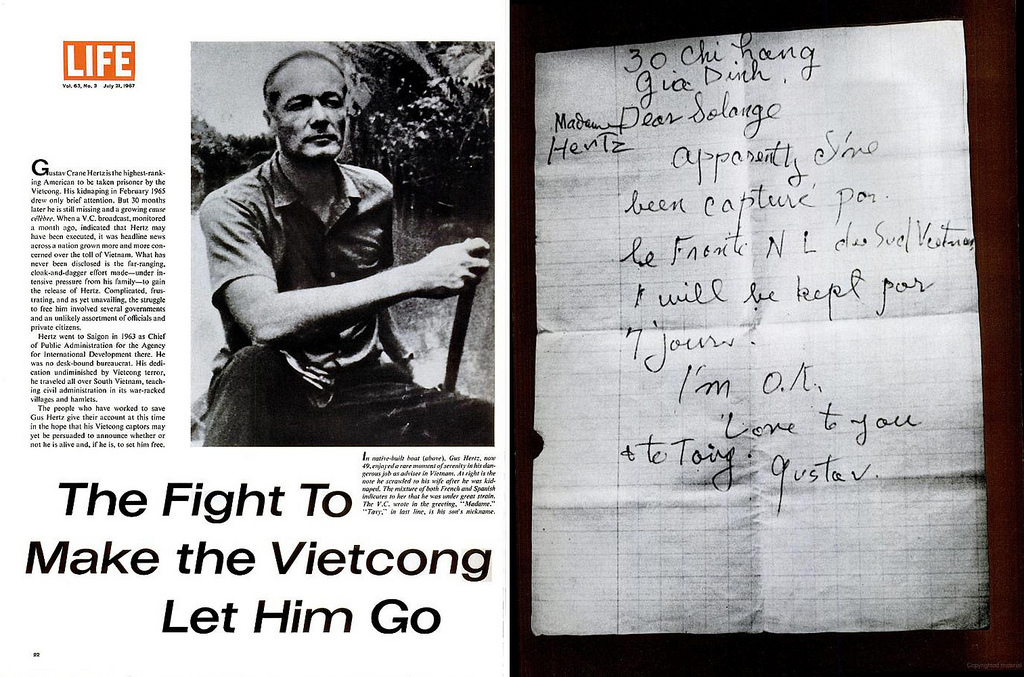 LIFE
Vol. 63, No. 3 July 21, 1967
Gustav Crane Hertz is the highest-rank-
ing American to be taken prisoner by the
Vietcong. His kidnaping in February 1965
drew only brief attention. But 30 months
later he is still missing and a growing cause
célèbre. When a V.C. broadcast, monitored
a month ago, indicated that Hertz may
have been executed, it was headline news
across a nation grown more and more con-
cerned over the toll of Vietnam. What has
never been disclosed is the far-ranging,
cloak-and-dagger effort made—under in-
tensive pressure from his family—to gain
the release of Hertz. Complicated, frus-
trating, and as yet unavailing, the struggle
to free him involved several governments
and an unlikely assortment of officials and
private citizens.
Hertz went to Saigon in 1963 as Chief
of Public Administration for the Agency
for International Development there. He
was no desk-bound bureaucrat. His dedi-
cation undiminished by Vietcong terror,
he traveled all over South Vietnam, teach-
ing civil administration in its war-racked
villages and hamlets.
The people who have worked to save
Gus Hertz give their account at this time
in the hope that his Vietcong captors may
yet be persuaded to announce whether or
not he is alive and, if he is, to set him free.
In native-built boat (above), Gus Hertz, now
49, enjoyed a rare moment of serenity in his dan-
gerous job as adviser in Vietnam. At right is the
note he scrawled to his wife after he was kid-
naped. The mixture of both French and Spanish
indicates to her that he was under great strain.
The V.C. wrote in the greeting, "Madame."
"Tavy," in last line, is his son's nickname.
The Fight To
Make the Vietcong
Let Him Go
22
30 Chi Lang
Gia Dinh.
Madame Dear Solange
Hertz
Apparently I've
been capturé par
le Fronte N L du Sud/Vietnam
I will be kept por
7 jours.
I'm O.K.
Love to you
& to Tavy.
Gustav.
Copyrighted material